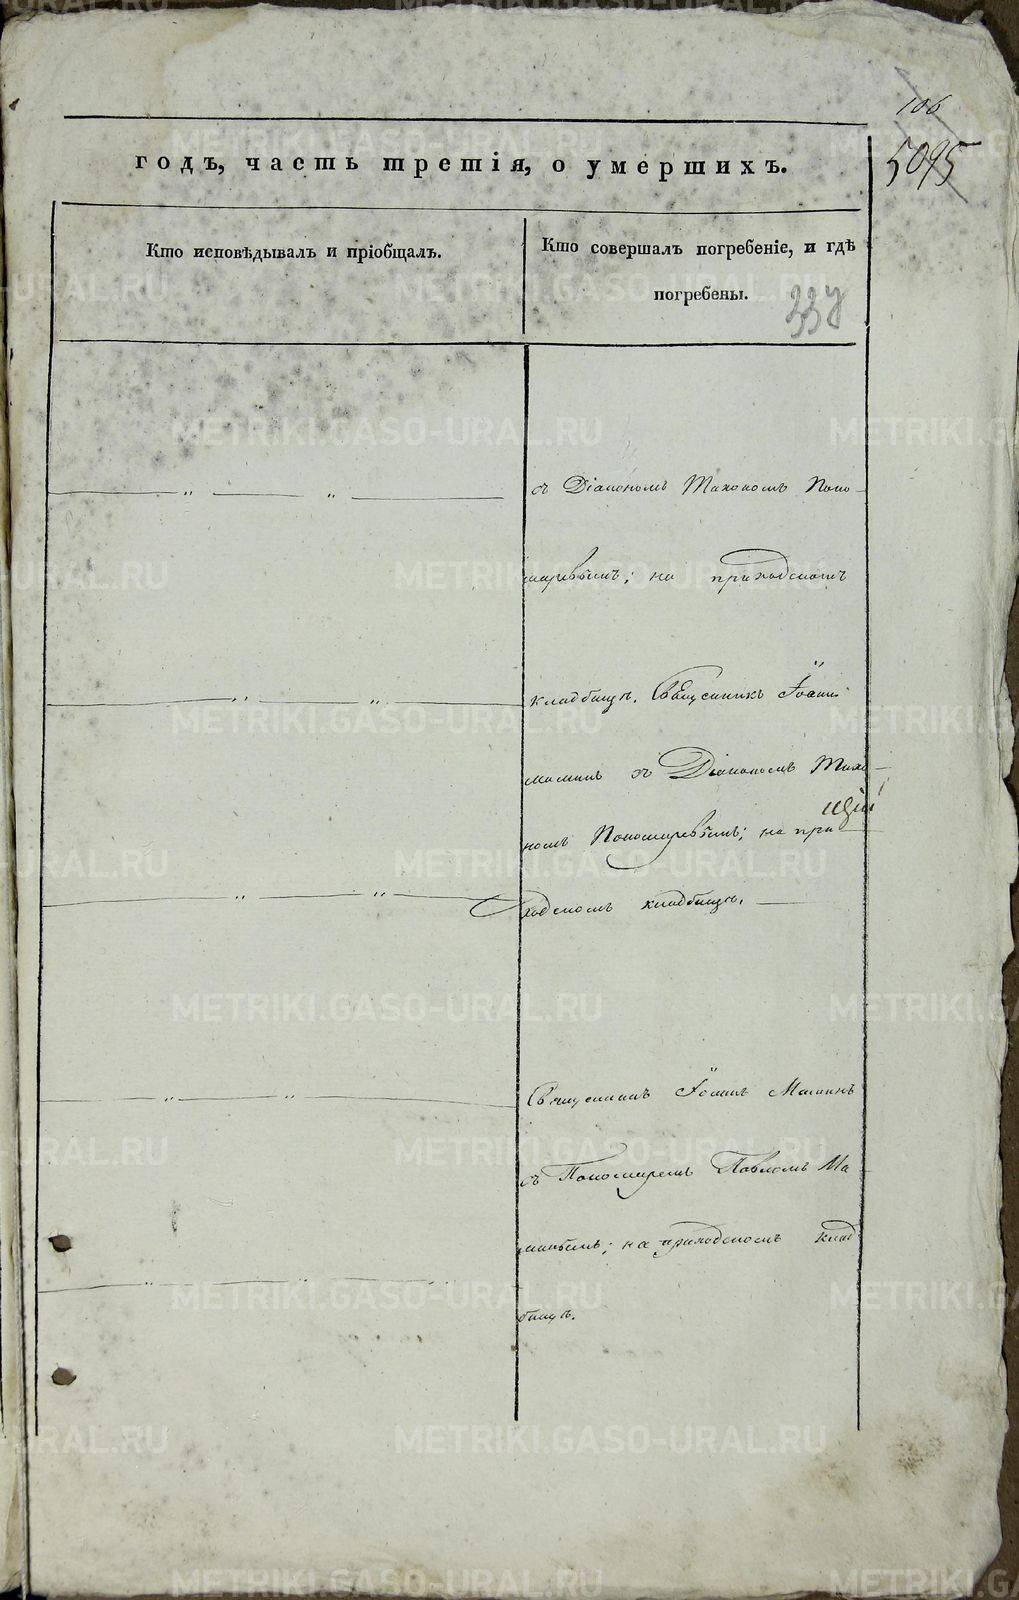 106
5095
годъ, часть третія, о умершихъ.
Кто исповѣдывалъ и пріобщалъ.
Кто совершалъ погребеніе, и гдѣ
погребены.
съ Діакономъ Тихономъ Поно-
маревымъ; на приходскомъ
кладбищѣ. Священникъ Іоаннъ
Маминъ съ Діакономъ Тихо-
номъ Пономаревымъ; на при-
ходскомъ кладбищѣ.
Священникъ Іоаннъ Маминъ
съ Пономаремъ Павломъ Ма-
минымъ; на приходскомъ клад
бищѣ.
METRIKI.GASO-URAL.RU